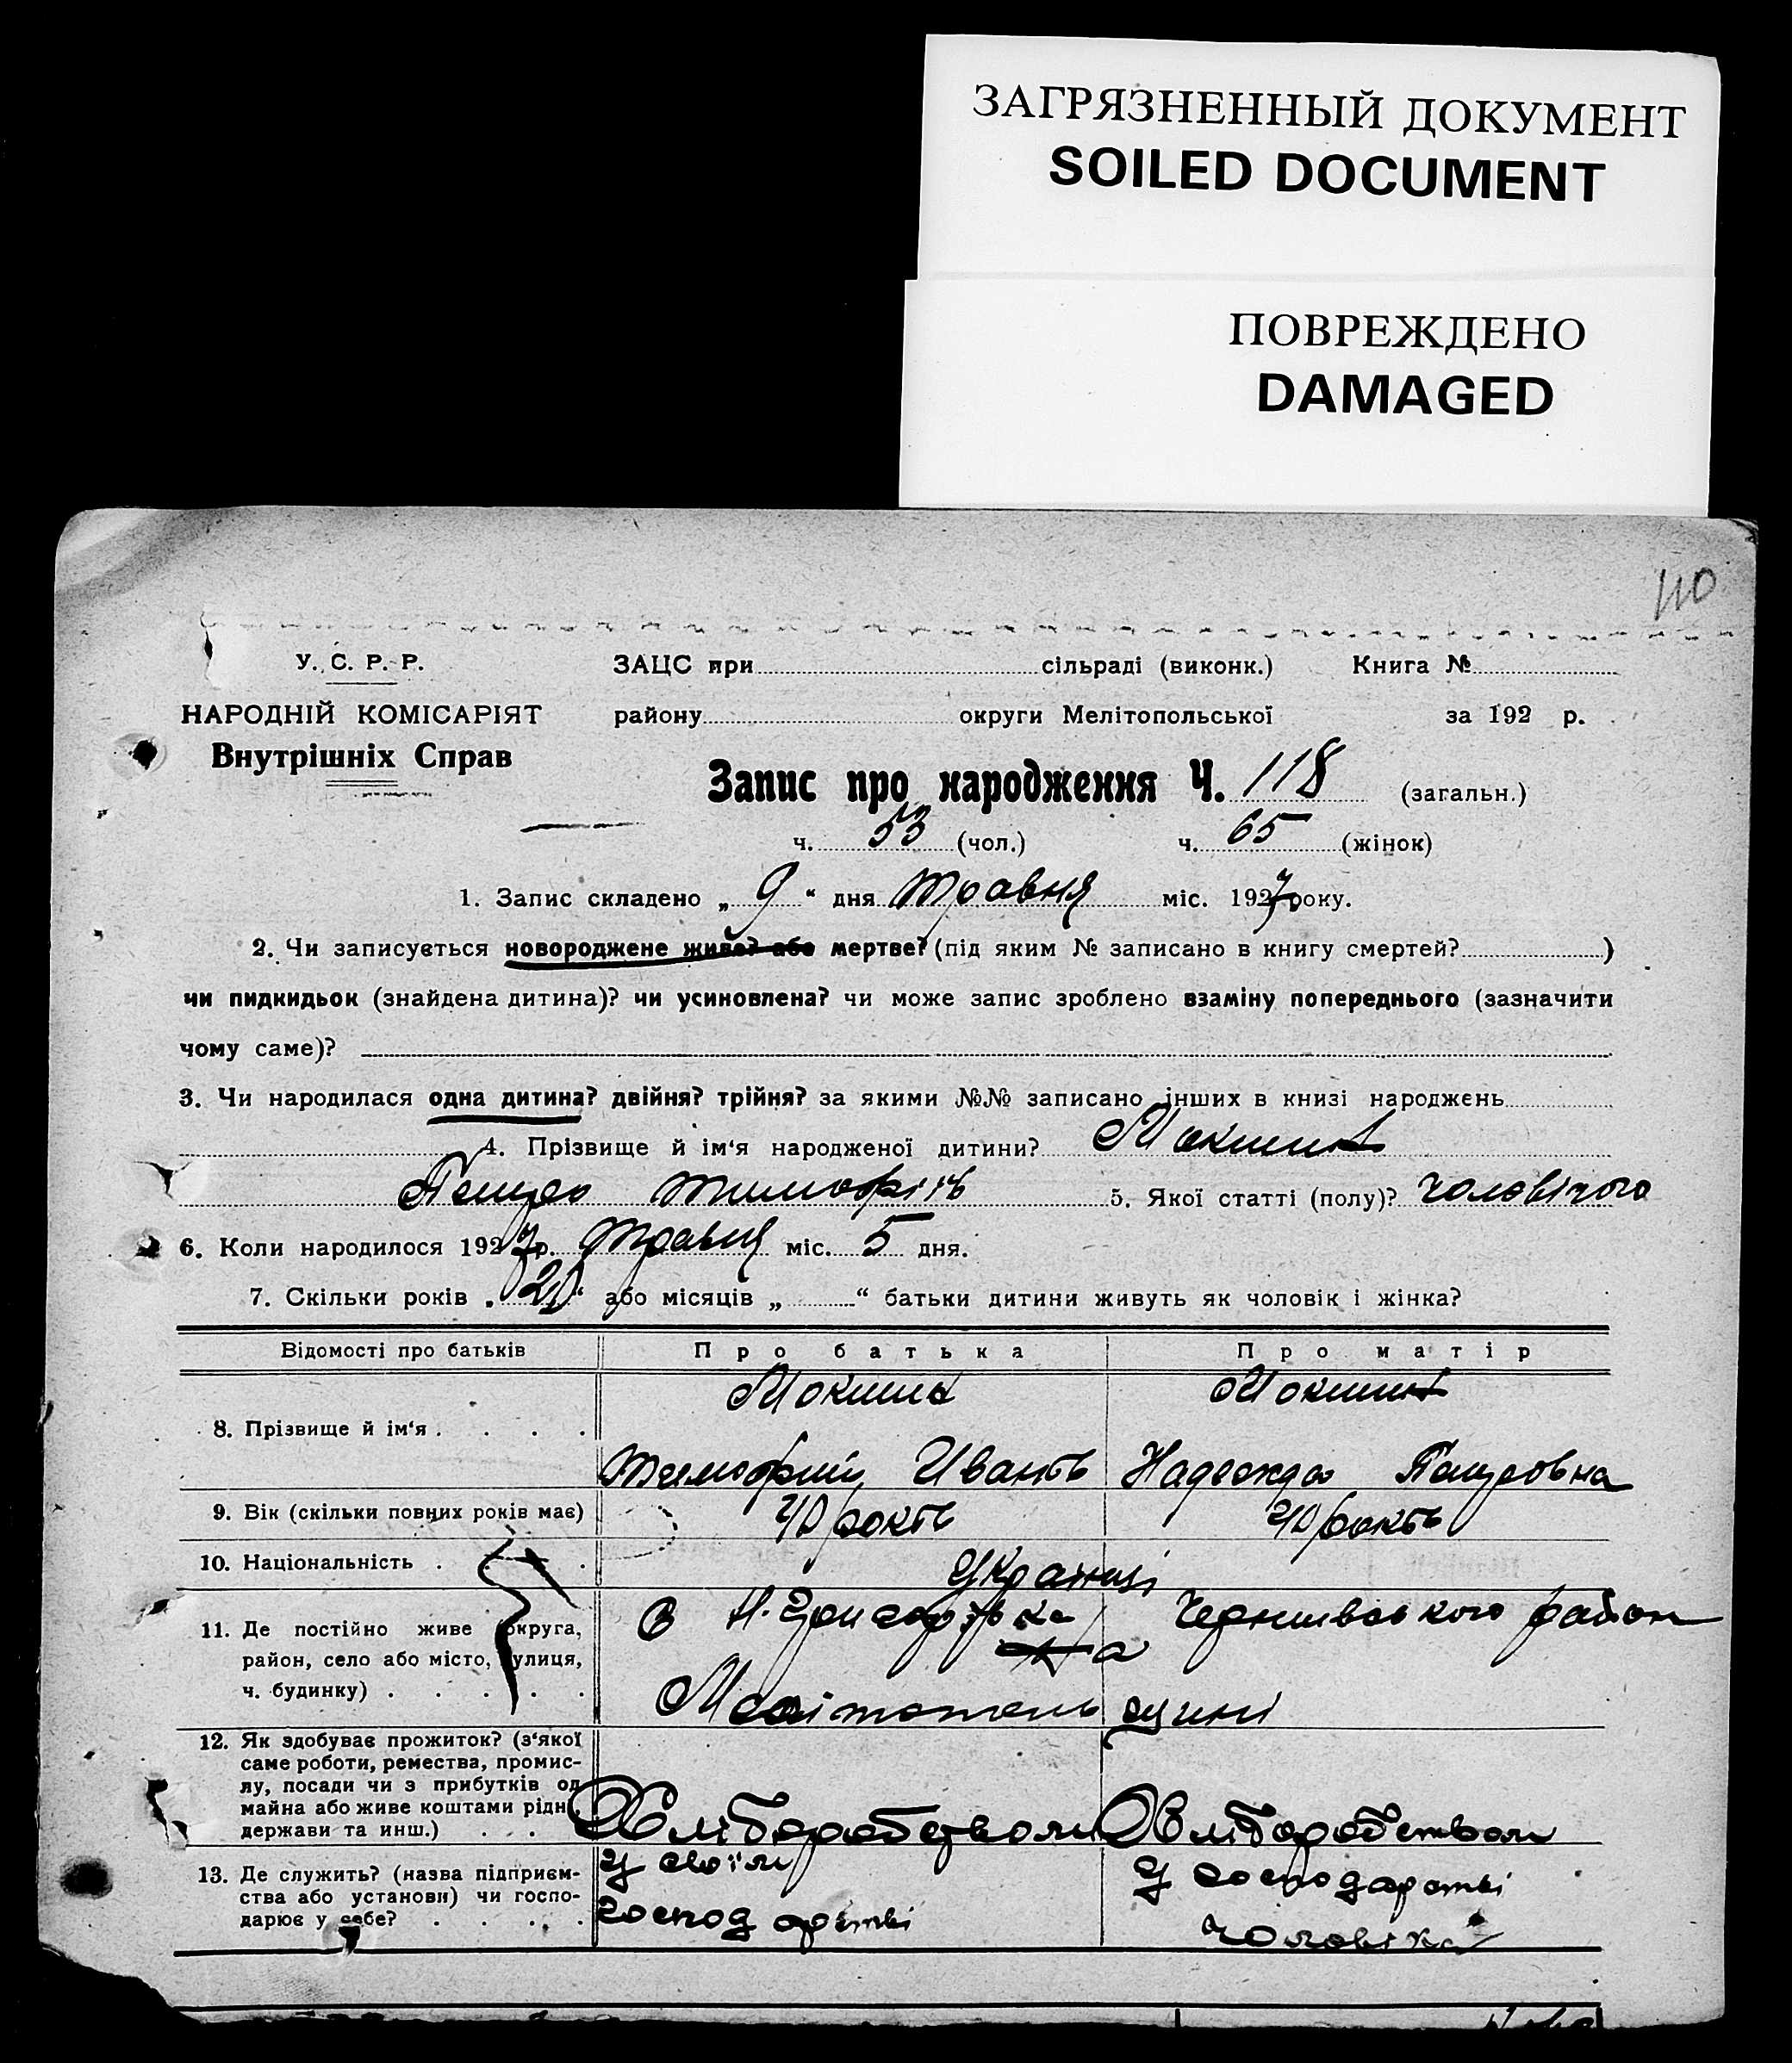 ЗАГРЯЗНЕННЫЙ ДОКУМЕНТ
SOILED DOCUMENT
ПОВРЕЖДЕНО
DAMAGED
110
У. С. Р. Р.
ЗАЦС при сільраді (виконк.) Книга №
НАРОДНІЙ КОМІСАРІЯТ
району округи Мелітопольської за 192 р.
Внутрішніх Справ
Запис про народження Ч. 118 (загальн.)
ч. 53 (чол.) ч. 65 (жінок)
1. Запис складено „ 9 “ дня травня міс. 1927 року.
2. Чи записується новороджене живе? або мертве? (під яким № записано в книгу смертей? )
чи пидкидьок (знайдена дитина)? чи усиновлена? чи може запис зроблено взаміну попереднього (зазначити
чому саме)?
3. Чи народилася одна дитина? двійня? трійня? за якими №№ записано інших в книзі народжень
4. Прізвище й ім‘я народженої дитини? Мокшин
5. Якої статті (полу)? чоловічого
6. Коли народилося 1927 р. травня міс. 5 дня.
7. Скільки років „ 20 “ або місяців „ “ батьки дитини живуть як чоловік і жінка?
Відомості про батьків Про батька Про матір
Мокшин Мокшин
8. Прізвище й ім‘я
Тимофий Иванів Надежда
9. Вік (скільки повних років має) 40 років 40 років
10. Національність Українці
11. Де постійно живе (округа,
район, село або місто, вулиця,
ч. будинку)
В Чернигівського район
Мелітопольщині
12. Як здобуває прожиток? (з‘якої
саме роботи, ремества, промис-
лу, посади чи з прибутків од
майна або живе коштами рідні,
держави та инш.)
Хліборобством Хліборобством
13. Де служить? (назва підприєм-
ства або установи) чи госпо-
дарює у себе?
У своїм
господарстві
У господарстві
чоловіка